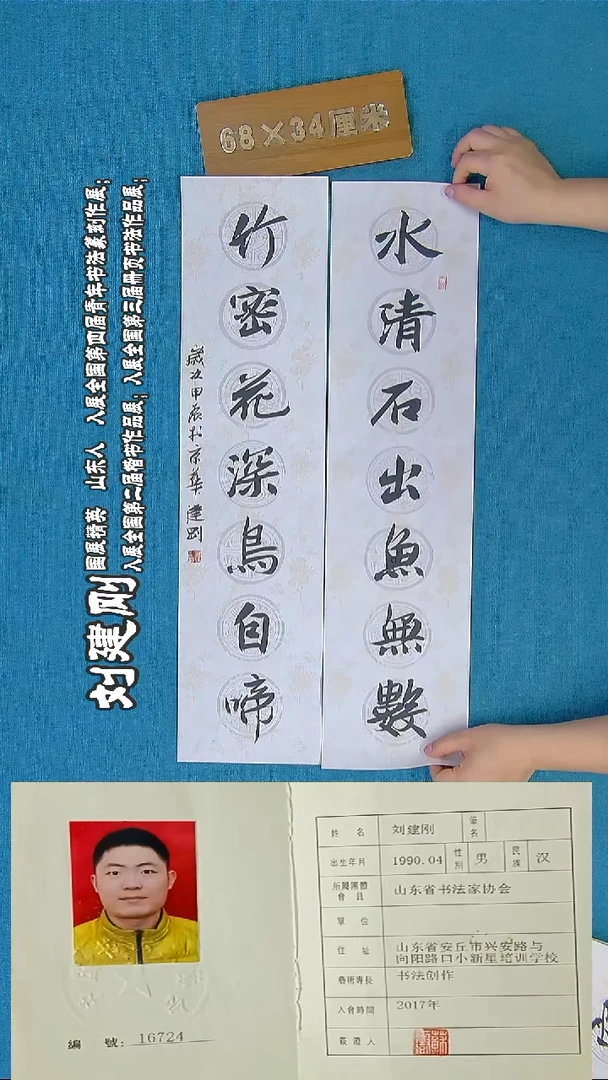 68×34厘米
水清石出魚無數
竹密花深鳥自啼
歲次甲辰於京華建剛
刘建刚
国展精英 山东人 入展全国第四届青年书法篆刻作展；
入展全国第二届楷书作品展； 入展全国第三届册页书法作品展；
姓名 刘建刚 筆名
出生年月 1990.04 性別 男 民族 汉
所屬團體會員 山东省书法家协会
單位
住址 山东省安丘市兴安路与
向阳路口小新星培训学校
藝術專長 书法创作
入會時間 2017年
簽證人
編號：16724